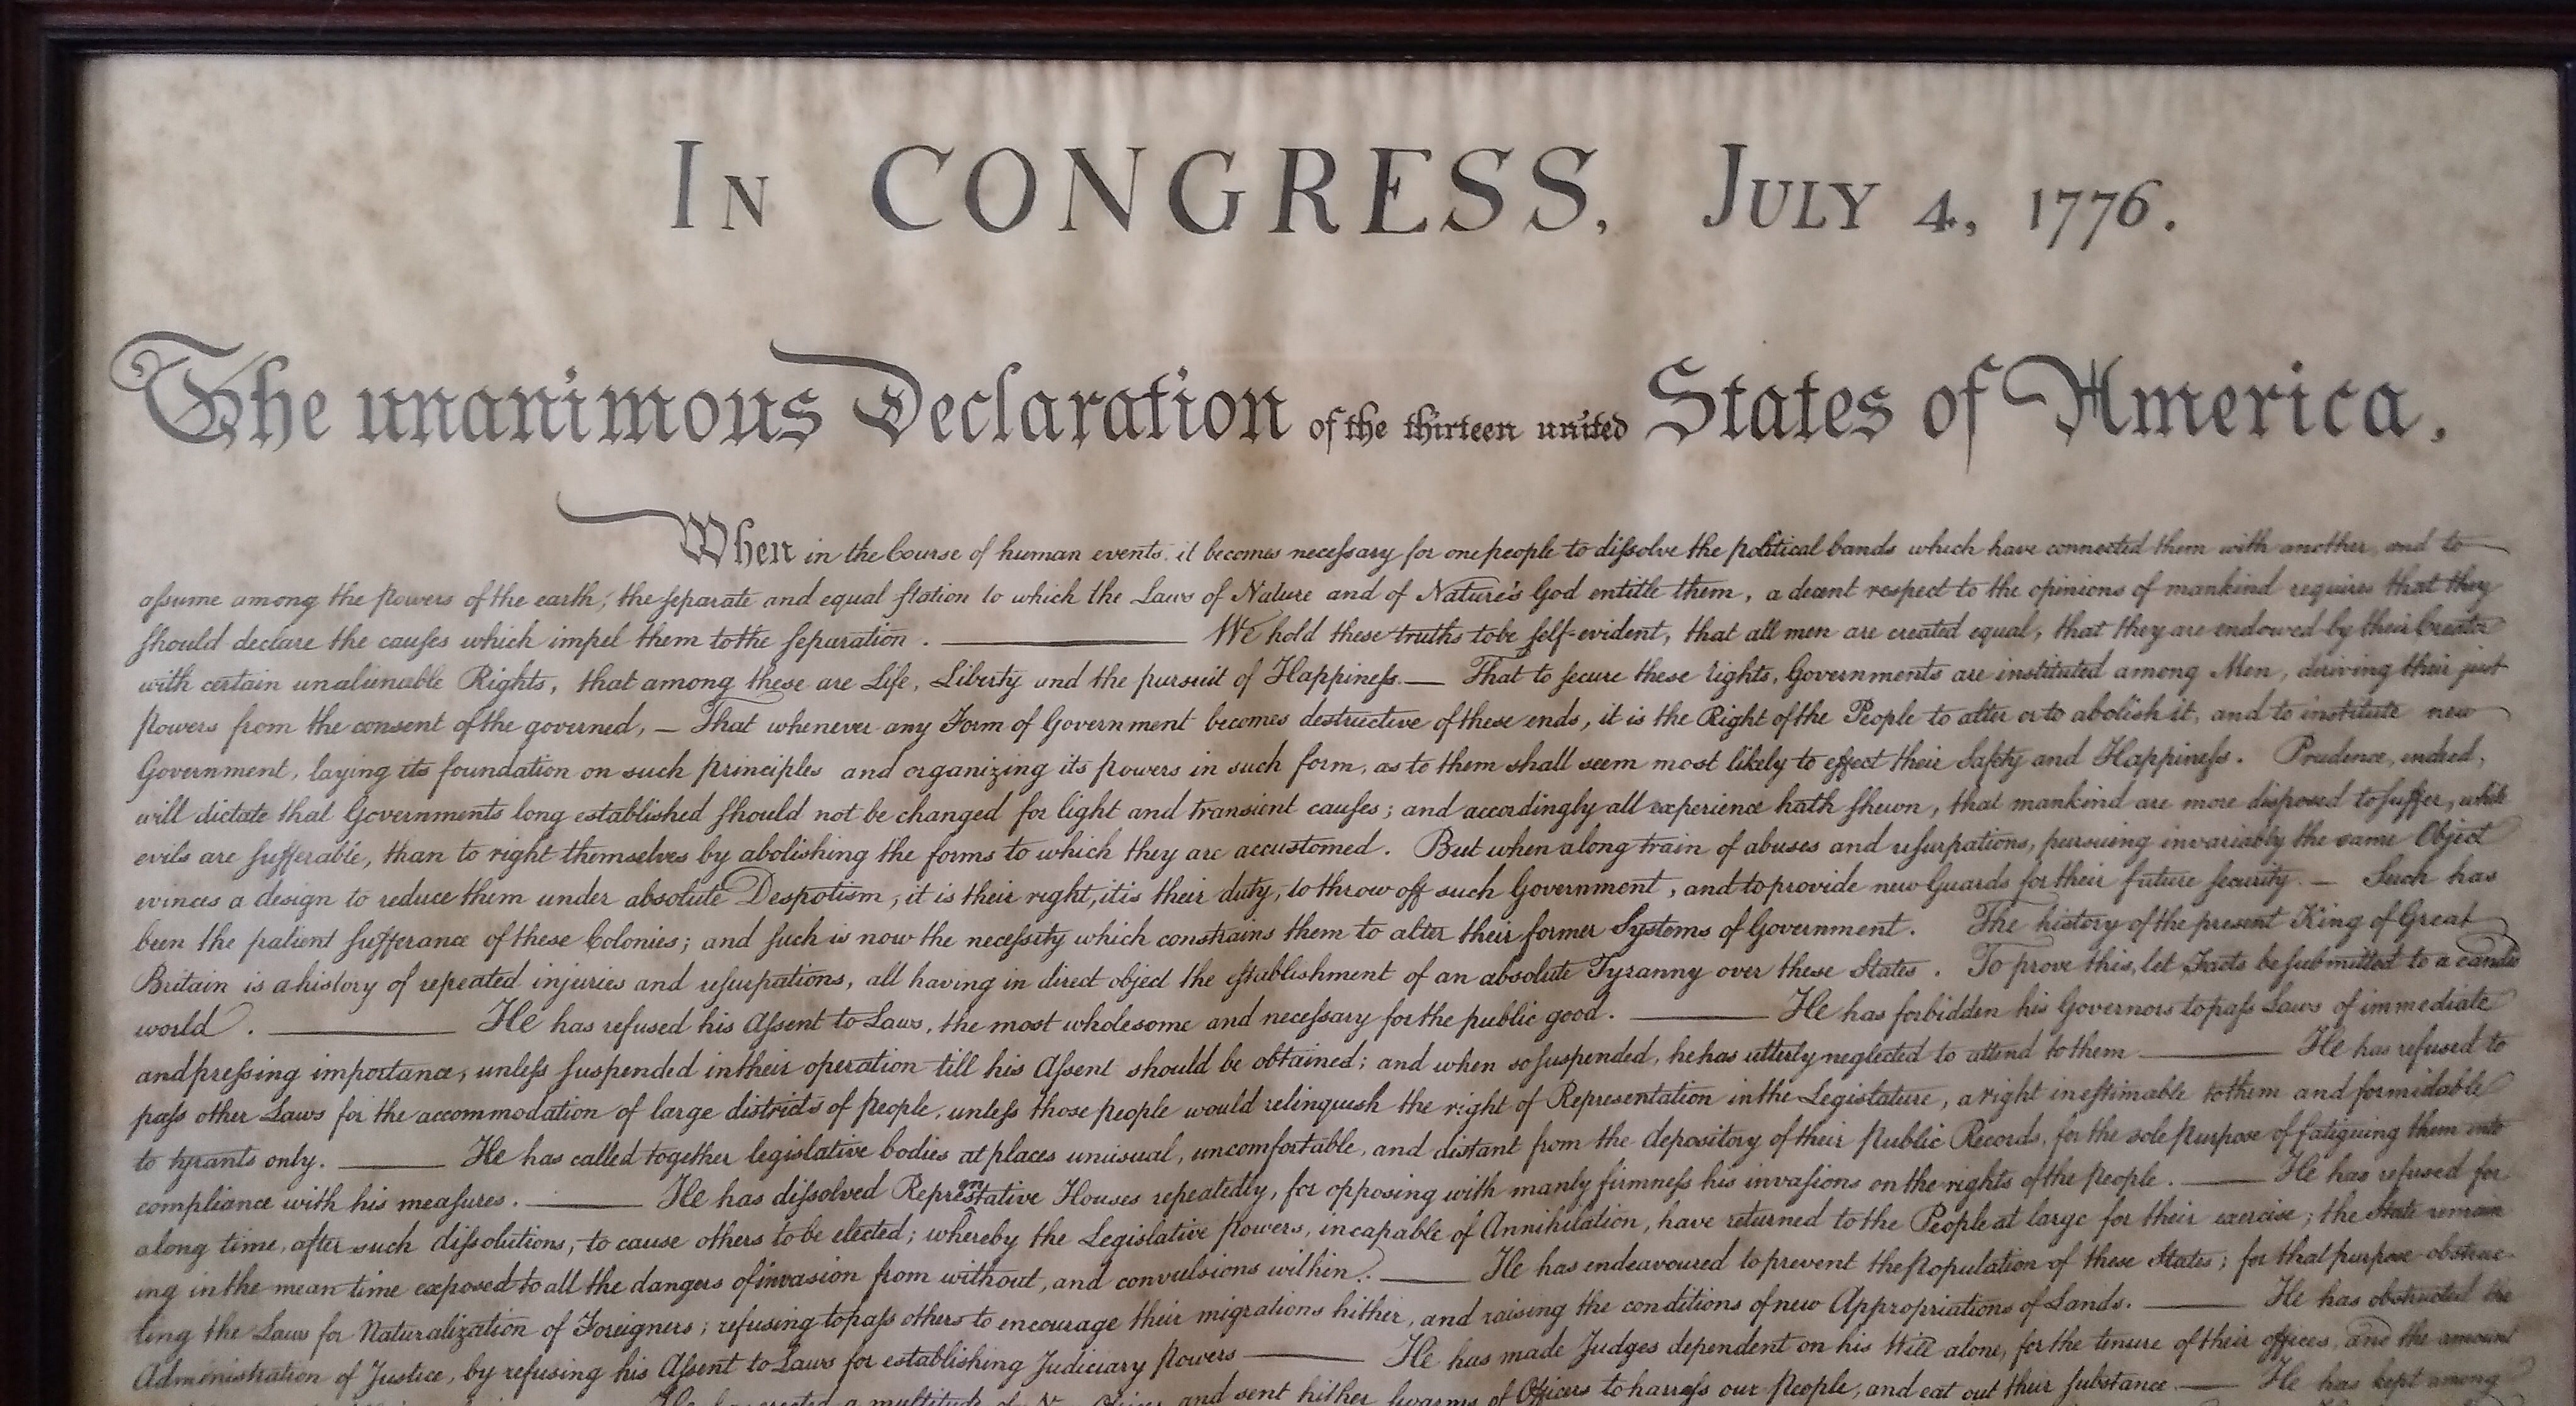 In CONGRESS, July 4, 1776.
The unanimous Declaration of the thirteen united States of America,
When in the Course of human events, it becomes necessary for one people to dissolve the political bands which have connected them with another, and to
assume among the powers of the earth, the separate and equal station to which the Laws of Nature and of Nature's God entitle them, a decent respect to the opinions of mankind requires that they
should declare the causes which impel them to the separation. ——— We hold these truths to be self-evident, that all men are created equal, that they are endowed by their Creator
with certain unalienable Rights, that among these are Life, Liberty and the pursuit of Happiness.— That to secure these rights, Governments are instituted among Men, deriving their just
powers from the consent of the governed, — That whenever any Form of Government becomes destructive of these ends, it is the Right of the People to alter or to abolish it, and to institute new
Government, laying its foundation on such principles and organizing its powers in such form, as to them shall seem most likely to effect their Safety and Happiness. Prudence, indeed,
will dictate that Governments long established should not be changed for light and transient causes; and accordingly all experience hath shewn, that mankind are more disposed to suffer, while
evils are sufferable, than to right themselves by abolishing the forms to which they are accustomed. But when a long train of abuses and usurpations, pursuing invariably the same Object
evinces a design to reduce them under absolute Despotism, it is their right, it is their duty, to throw off such Government, and to provide new Guards for their future security. — Such has
been the patient sufferance of these Colonies; and such is now the necessity which constrains them to alter their former Systems of Government. The history of the present King of Great
Britain is a history of repeated injuries and usurpations, all having in direct object the establishment of an absolute Tyranny over these States. To prove this, let Facts be submitted to a candid
world. ——— He has refused his Assent to Laws, the most wholesome and necessary for the public good. ——— He has forbidden his Governors to pass Laws of immediate
and pressing importance, unless suspended in their operation till his Assent should be obtained; and when so suspended, he has utterly neglected to attend to them ——— He has refused to
pass other Laws for the accommodation of large districts of people, unless those people would relinquish the right of Representation in the Legislature, a right inestimable to them and formidable
to tyrants only. ——— He has called together legislative bodies at places unusual, uncomfortable, and distant from the depository of their Public Records, for the sole purpose of fatiguing them into
compliance with his measures. ——— He has dissolved Representative Houses repeatedly, for opposing with manly firmness his invasions on the rights of the people. ——— He has refused for
a long time, after such dissolutions, to cause others to be elected; whereby the Legislative powers, incapable of Annihilation, have returned to the People at large for their exercise; the State remain
ing in the mean time exposed to all the dangers of invasion from without, and convulsions within. ——— He has endeavoured to prevent the Population of these States; for that purpose obstruc-
ting the Laws for Naturalization of Foreigners; refusing to pass others to encourage their migrations hither, and raising the conditions of new Appropriations of Lands. ——— He has obstructed the
Administration of Justice, by refusing his Assent to Laws for establishing Judiciary Powers ——— He has made Judges dependent on his Will alone, for the tenure of their offices, and the amount
He has erected a multitude of and sent hither swarms of Officers to harrass our People, and eat out their substance. ——— He has kept among